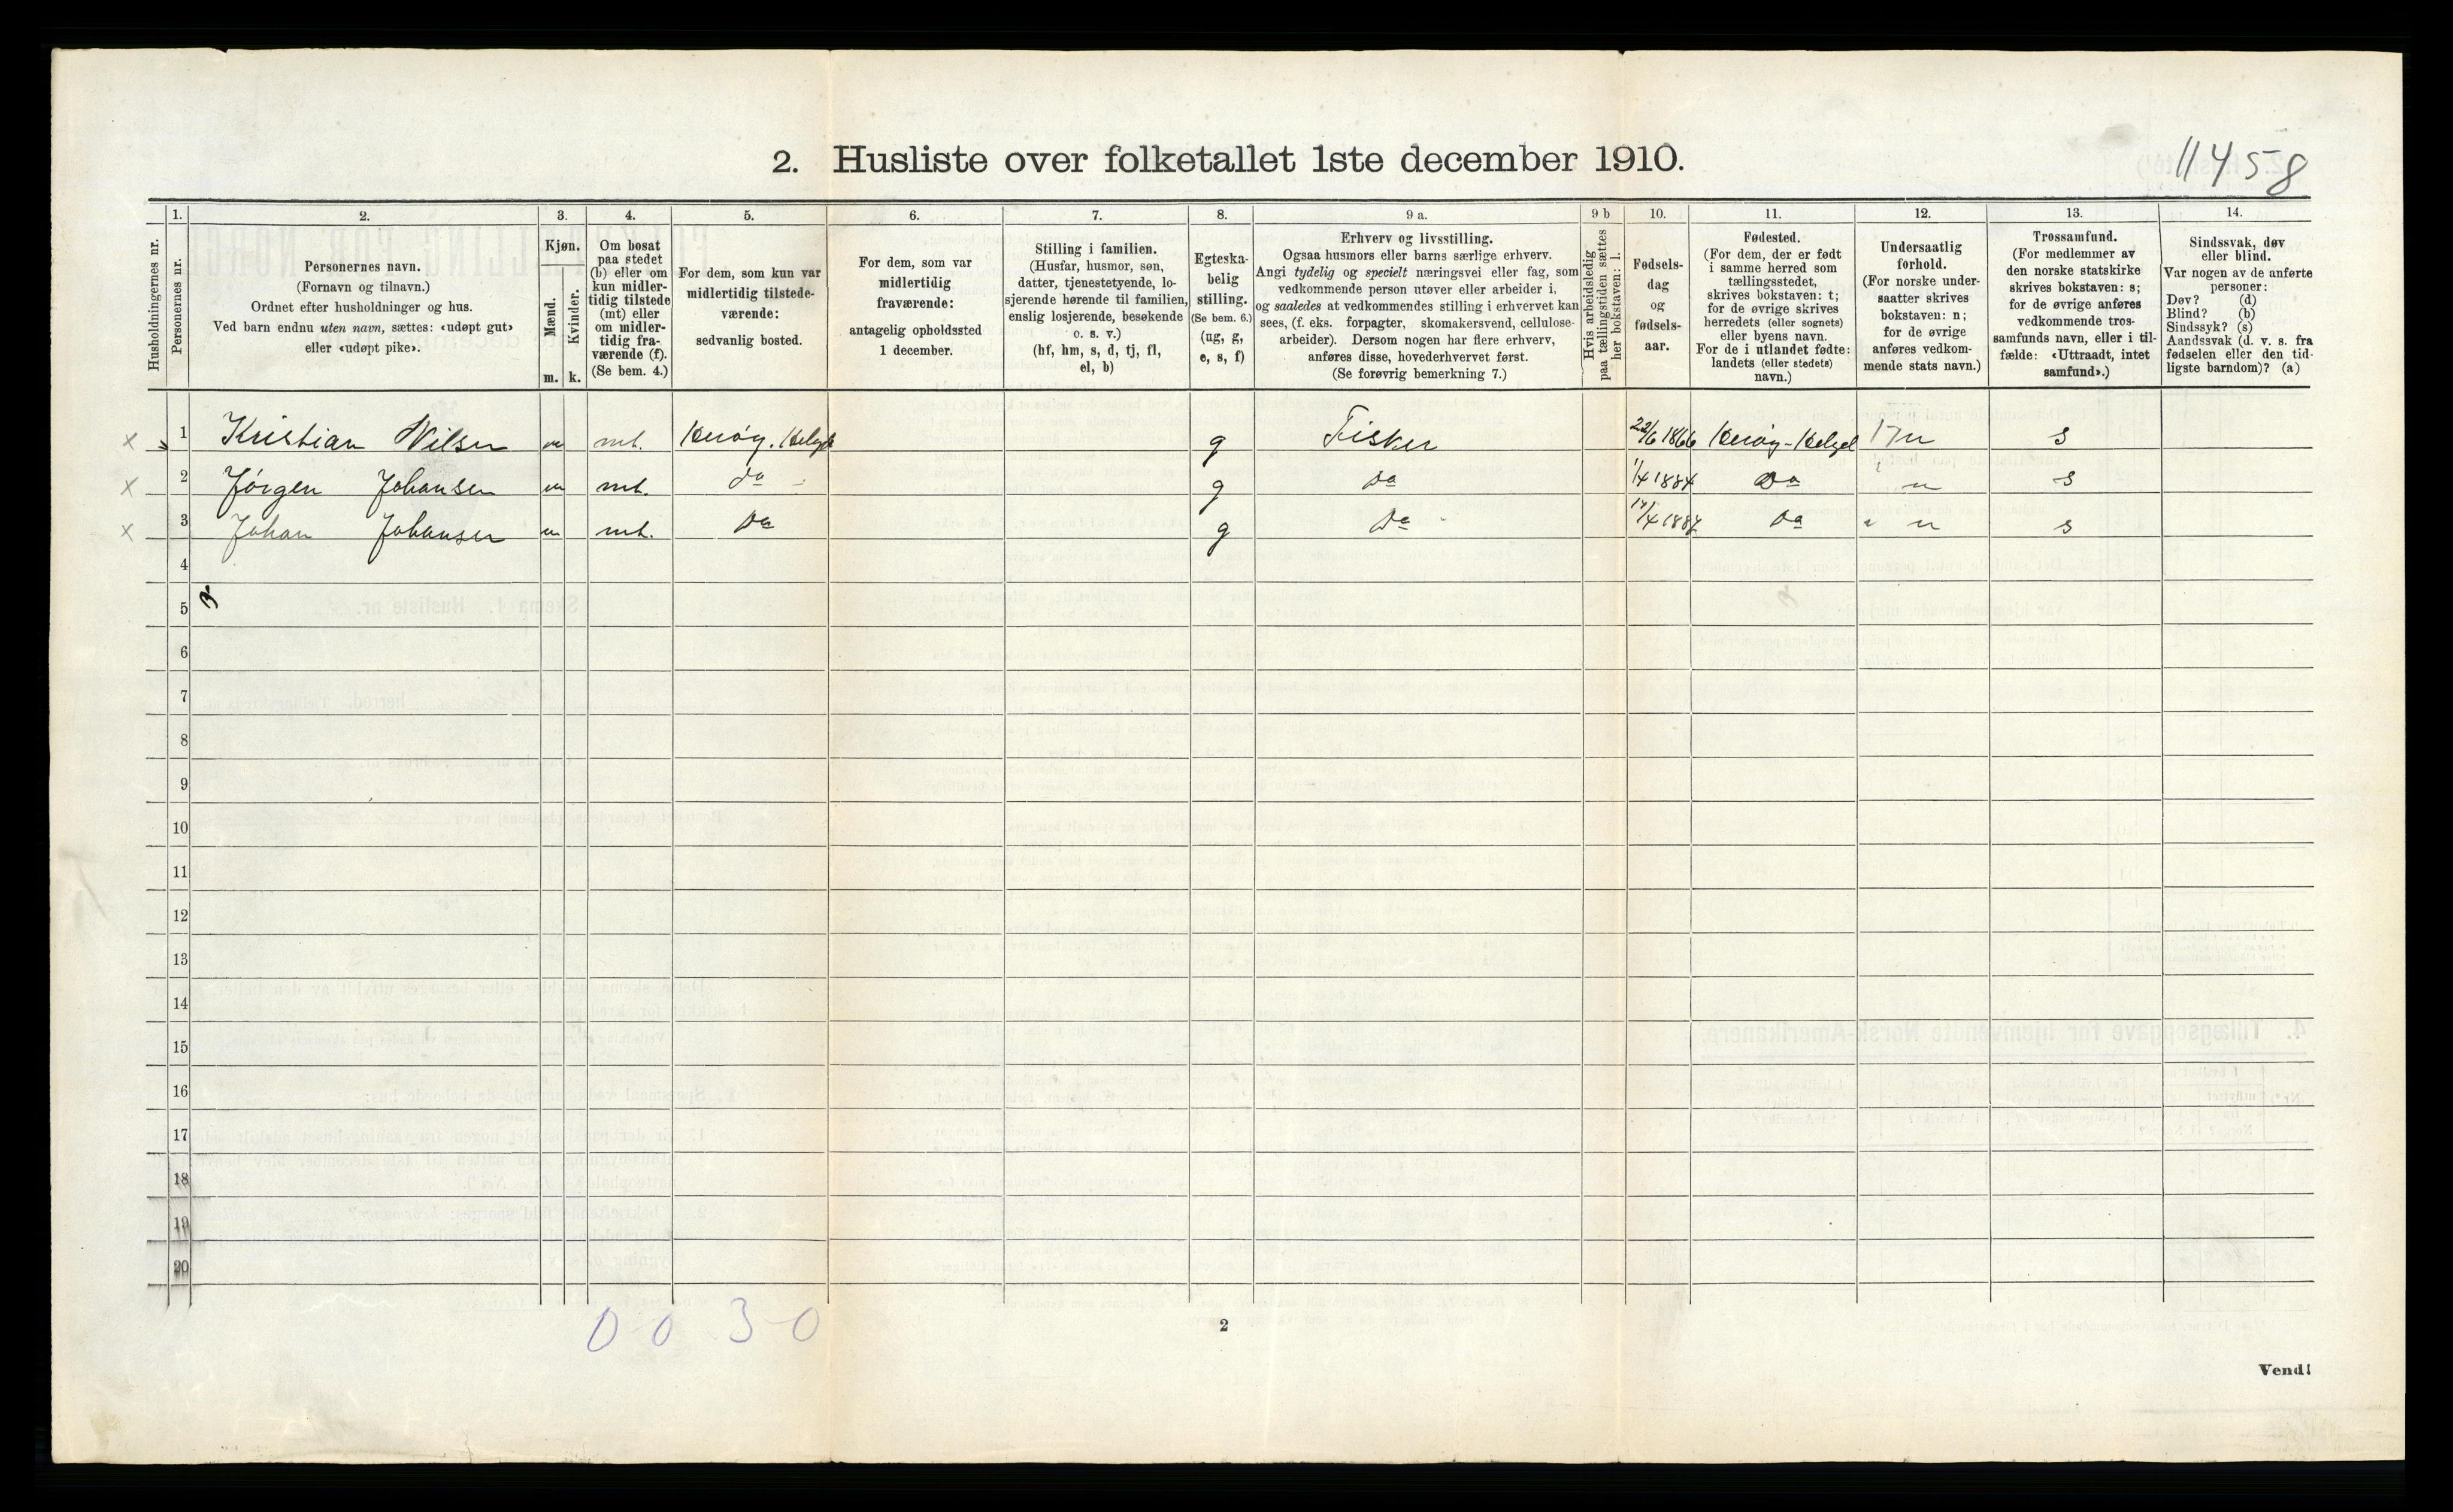 2. Husliste over folketallet 1ste december 1910.
11458
Husholdningernes nr.
1.
Personernes nr.
2.
Personernes navn.
(Fornavn og tilnavn.)
Ordnet efter husholdninger og hus.
Ved barn endnu uten navn, sættes: «udøpt gut»
eller «udøpt pike».
3.
Kjøn.
Mænd.
Kvinder.
m. k.
4.
Om bosat
paa stedet
(b) eller om
kun midler-
tidig tilstede
(mt) eller
om midler-
tidig fra-
værende (f).
(Se bem. 4.)
5.
For dem, som kun var
midlertidig tilstede-
værende:
sedvanlig bosted.
6.
For dem, som var
midlertidig
fraværende:
antagelig opholdssted
1 december.
7.
Stilling i familien.
(Husfar, husmor, søn,
datter, tjenestetyende, lo-
sjerende hørende til familien,
enslig losjerende, besøkende
o. s. v.)
(hf, hm, s, d, tj, fl,
el, b)
8.
Egteska-
belig
stilling.
(Se bem. 6.)
(ug, g,
e, s, f)
9 a.
Erhverv og livsstilling.
Ogsaa husmors eller barns særlige erhverv.
Angi tydelig og specielt næringsvei eller fag, som
vedkommende person utøver eller arbeider i,
og saaledes at vedkommendes stilling i erhvervet kan
sees, (f. eks. forpagter, skomakersvend, cellulose-
arbeider). Dersom nogen har flere erhverv,
anføres disse, hovederhvervet først.
(Se forøvrig bemerkning 7.)
9 b
Hvis arbeidsledig
paa tællingstiden sættes
her bokstaven: l.
10.
Fødsels-
dag
og
fødsels-
aar.
11.
Fødested.
(For dem, der er født
i samme herred som
tællingsstedet,
skrives bokstaven: t;
for de øvrige skrives
herredets (eller sognets)
eller byens navn.
For de i utlandet fødte:
landets (eller stedets)
navn.)
12.
Undersaatlig
forhold.
(For norske under-
saatter skrives
bokstaven: n;
for de øvrige
anføres vedkom-
mende stats navn.)
13.
Trossamfund.
(For medlemmer av
den norske statskirke
skrives bokstaven: s;
for de øvrige anføres
vedkommende tros-
samfunds navn, eller i til-
fælde: «Uttraadt, intet
samfund».)
14.
Sindssvak, døv
eller blind.
Var nogen av de anførte
personer:
Døv? (d)
Blind? (b)
Sindssyk? (s)
Aandssvak (d. v. s. fra
fødselen eller den tid-
ligste barndom)? (a)
x 1 Kristian Nilsen m mt. Herøy. Helgel g Fisker 22/6 1866 Herøy-Helgel 17 n s
x 2 Jörgen Johansen m mt. do g Do 1/4 1884 Do n s
x 3 Johan Johansen m mt. Do g Do 1887 Do n s
4
5 3
6
7
8
9
10
11
12
13
14
15
16
17
18
19
20
0 0 3 0
2
Vend!